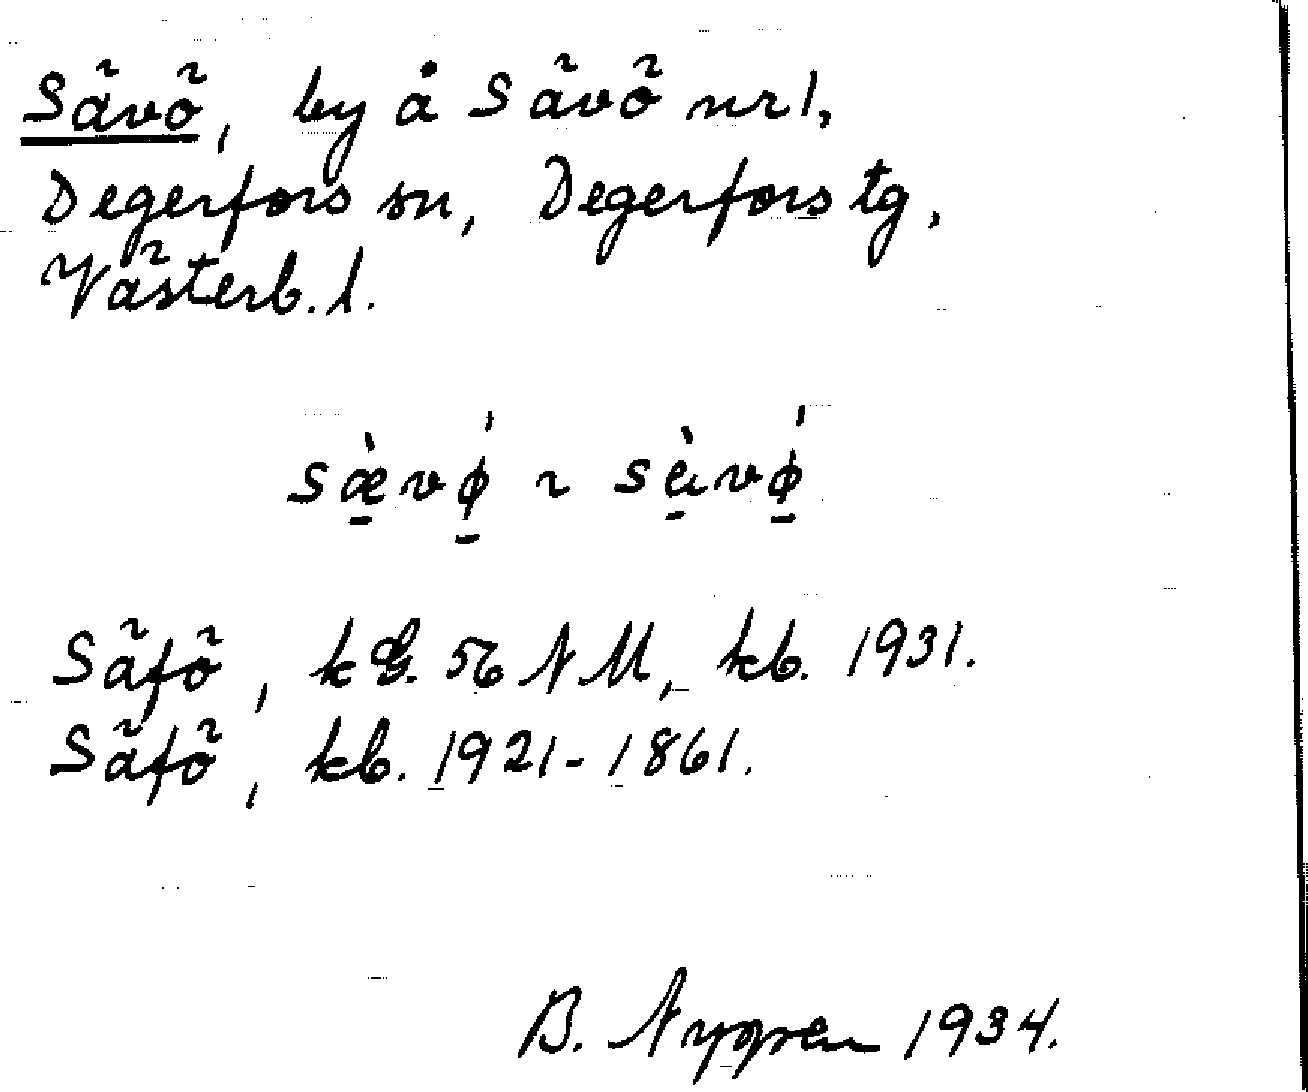 Sävö, by å Sävö nr 1,
Degerfors sn, Degerfors tg,
Västerb. l.
Säfö, kG. 56 NM, kb. 1931.
Säfö, kb. 1921-1861.
B. Nygren 1934.